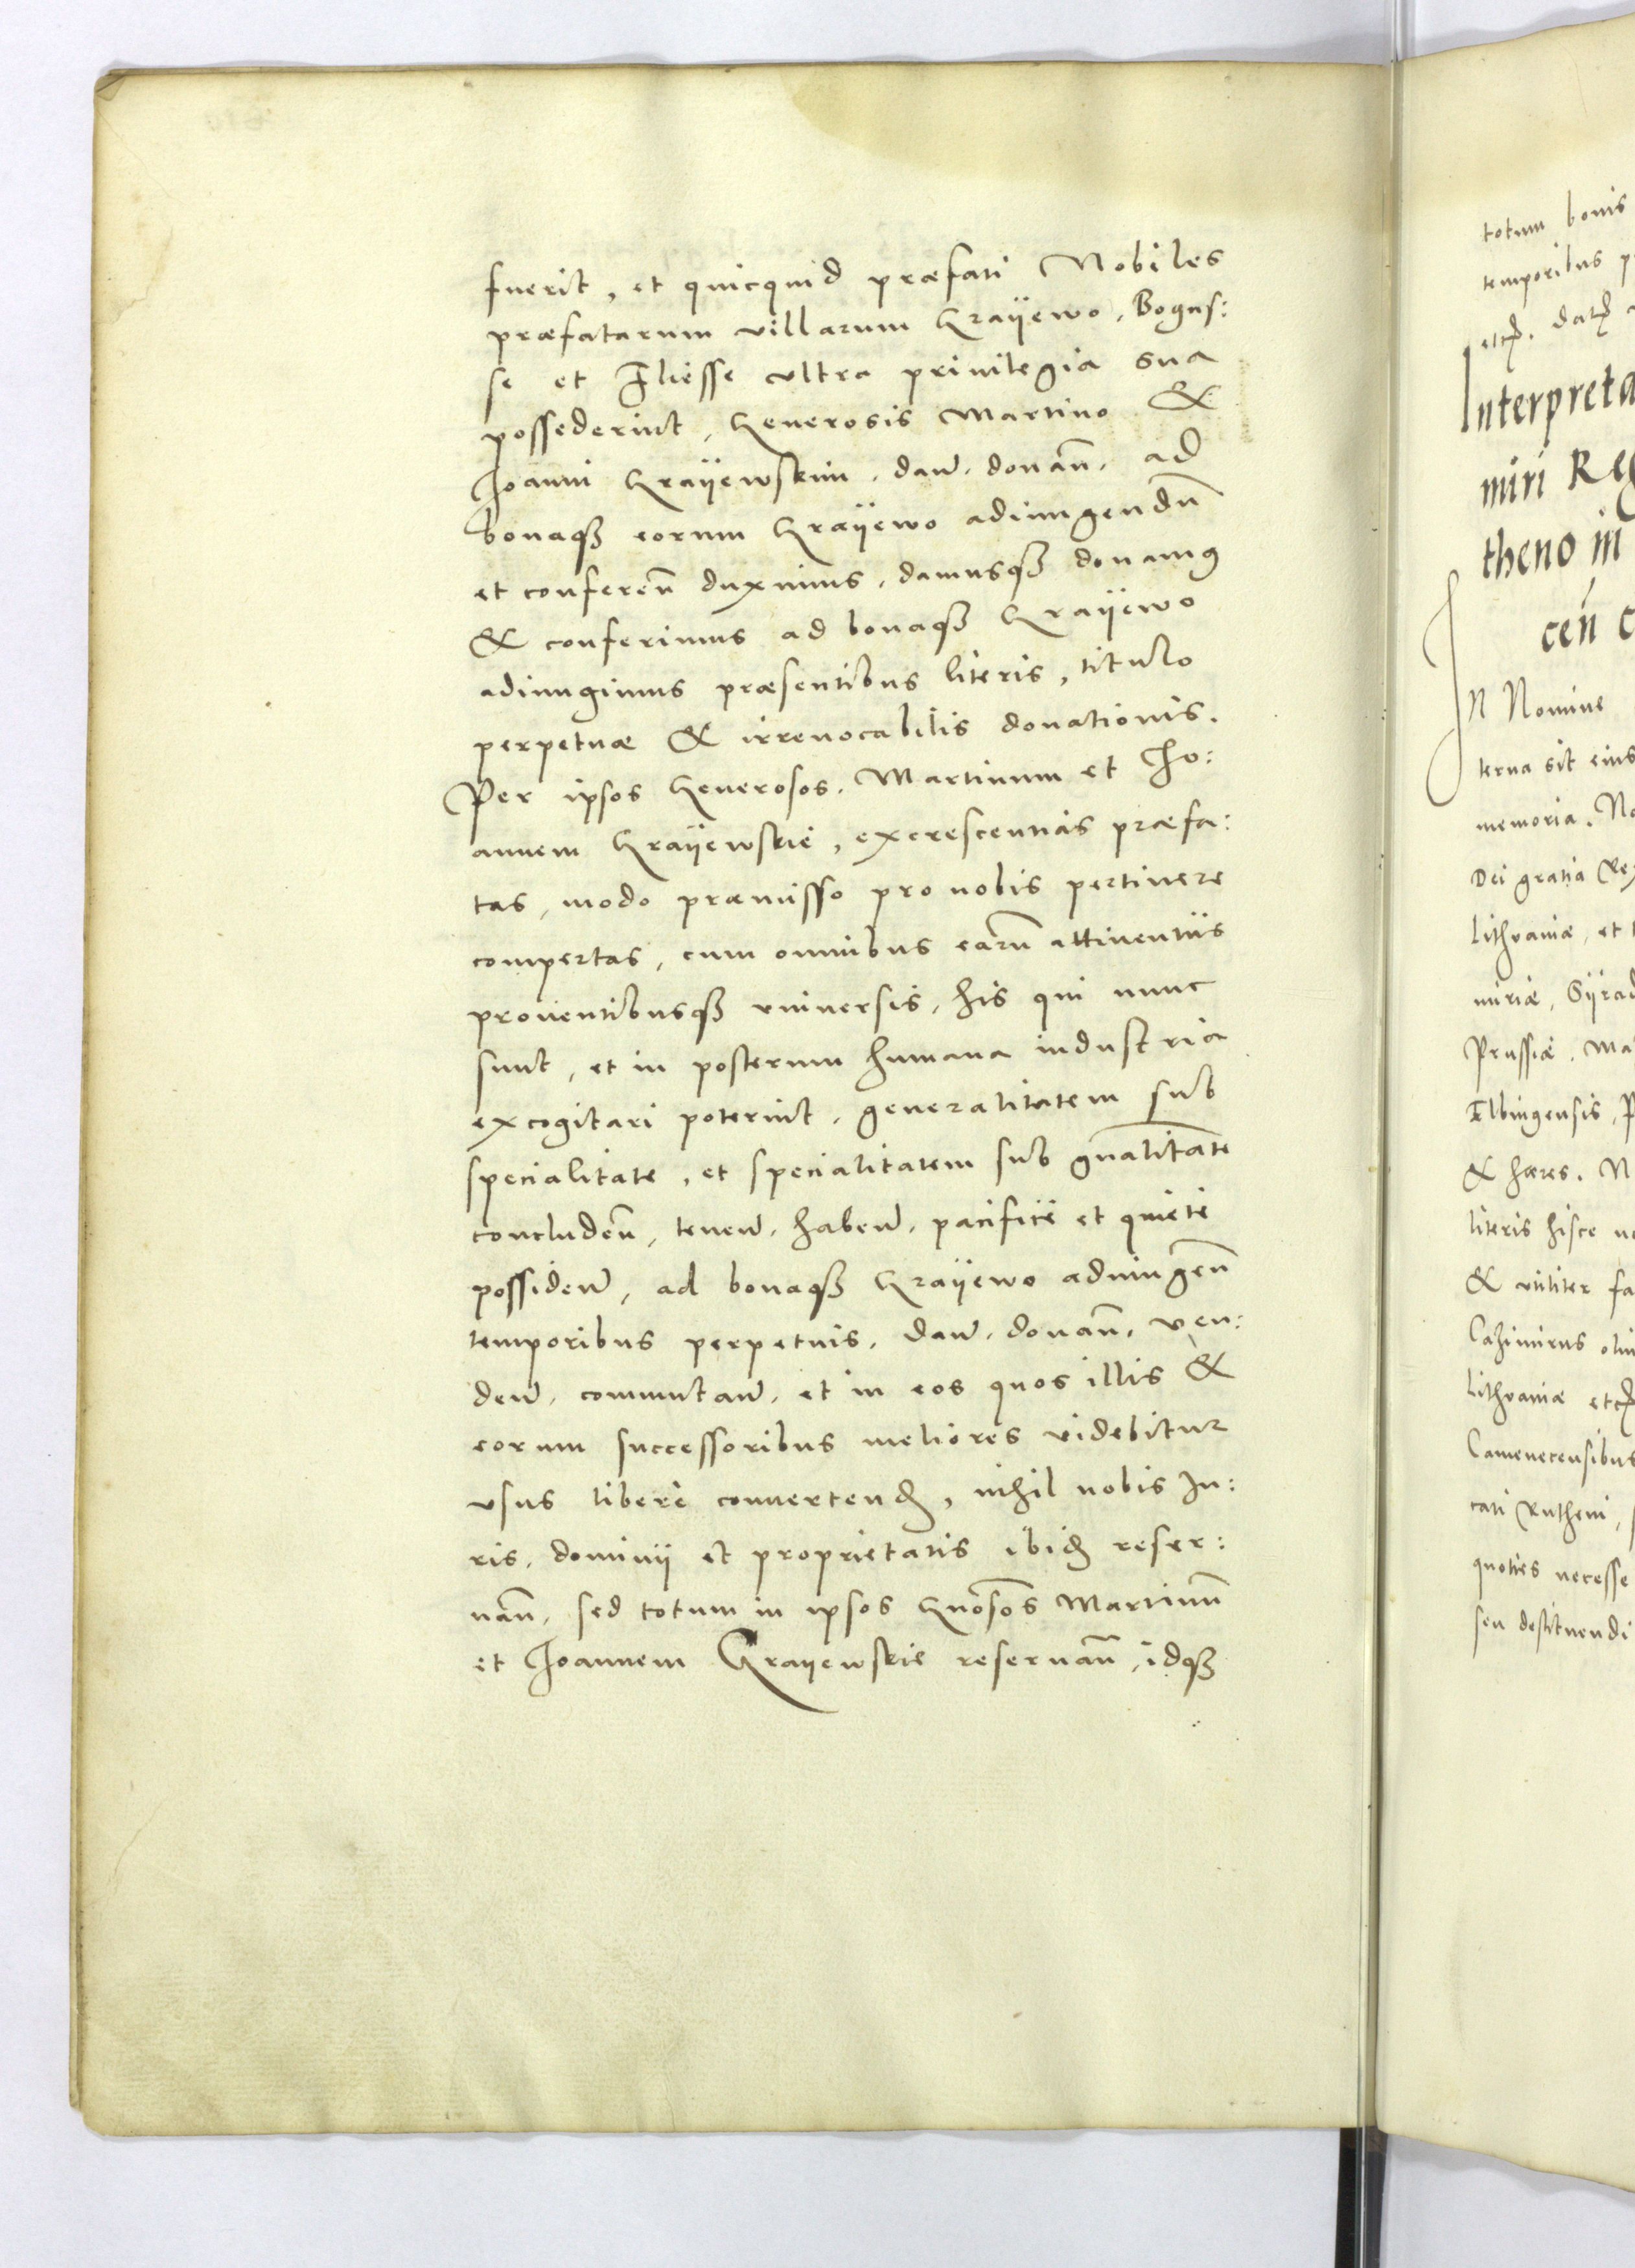 fuerit, et quicquid præfati Nobiles
præfatarum villarum Grayewo, Bogus:
se et Fliesse vltra priuilegia sua
possederint, Generosis Martino &
Joanni Grayewskim, dan̄, donan̄, ad
bonaqꝫ eorum Grayewo adiungendū
et conferen̄ duximus, damusqꝫ donamꝰ
& conferimus ad bonaqꝫ Grayewo
adiungimus præsentibus literis, titulo
perpetuæ & irreuocabilis donationis.
Per ipsos Generosos, Martinum et Jo:
annem Grayewskie, excrescentias præfa:
tas, modo præmisso pro nobis pertinere
compertas, cum omnibus earū attinentiis
prouentibusqꝫ vniuersis, his qui nunc
sunt, et in posterum humana industria
excogitari poterint, generalitatem sub
specialitate, et specialitatem sub gn̄alitate
concluden̄, tenen̄, haben̄, pacificè et quietè
possiden̄, ad bonaqꝫ Grayewo adiungen̄
temporibus perpetuis, dan̄, donan̄, ven:
den̄, commutan̄, et in eos quos illis &
eorum successoribus meliores videbitur
vsus liberè conuertenđ, nihil nobis Ju:
ris, dominij et proprietatis ibiđ reser:
uan̄, sed totum in ipsos Gn̄osos Martinū
et Joannem Grayewskie reseruan̄, idqꝫ
totum bonis
temporibus
etc. dat
Interpreta
miri Reg
theno in
cen̄ c
In Nomine
terna sit eius
memoria. No
Dei gratia Rex
Lithvaniæ, et
miriæ, Syrad
Prussiæ, Ma
Elbingensis, P
& hæres. N
literis hisce
& vtiliter fa
Cazimirus olim
Lithvaniæ etc
Camenecensibus
cati Rutheni,
quoties necesse
seu destituendi